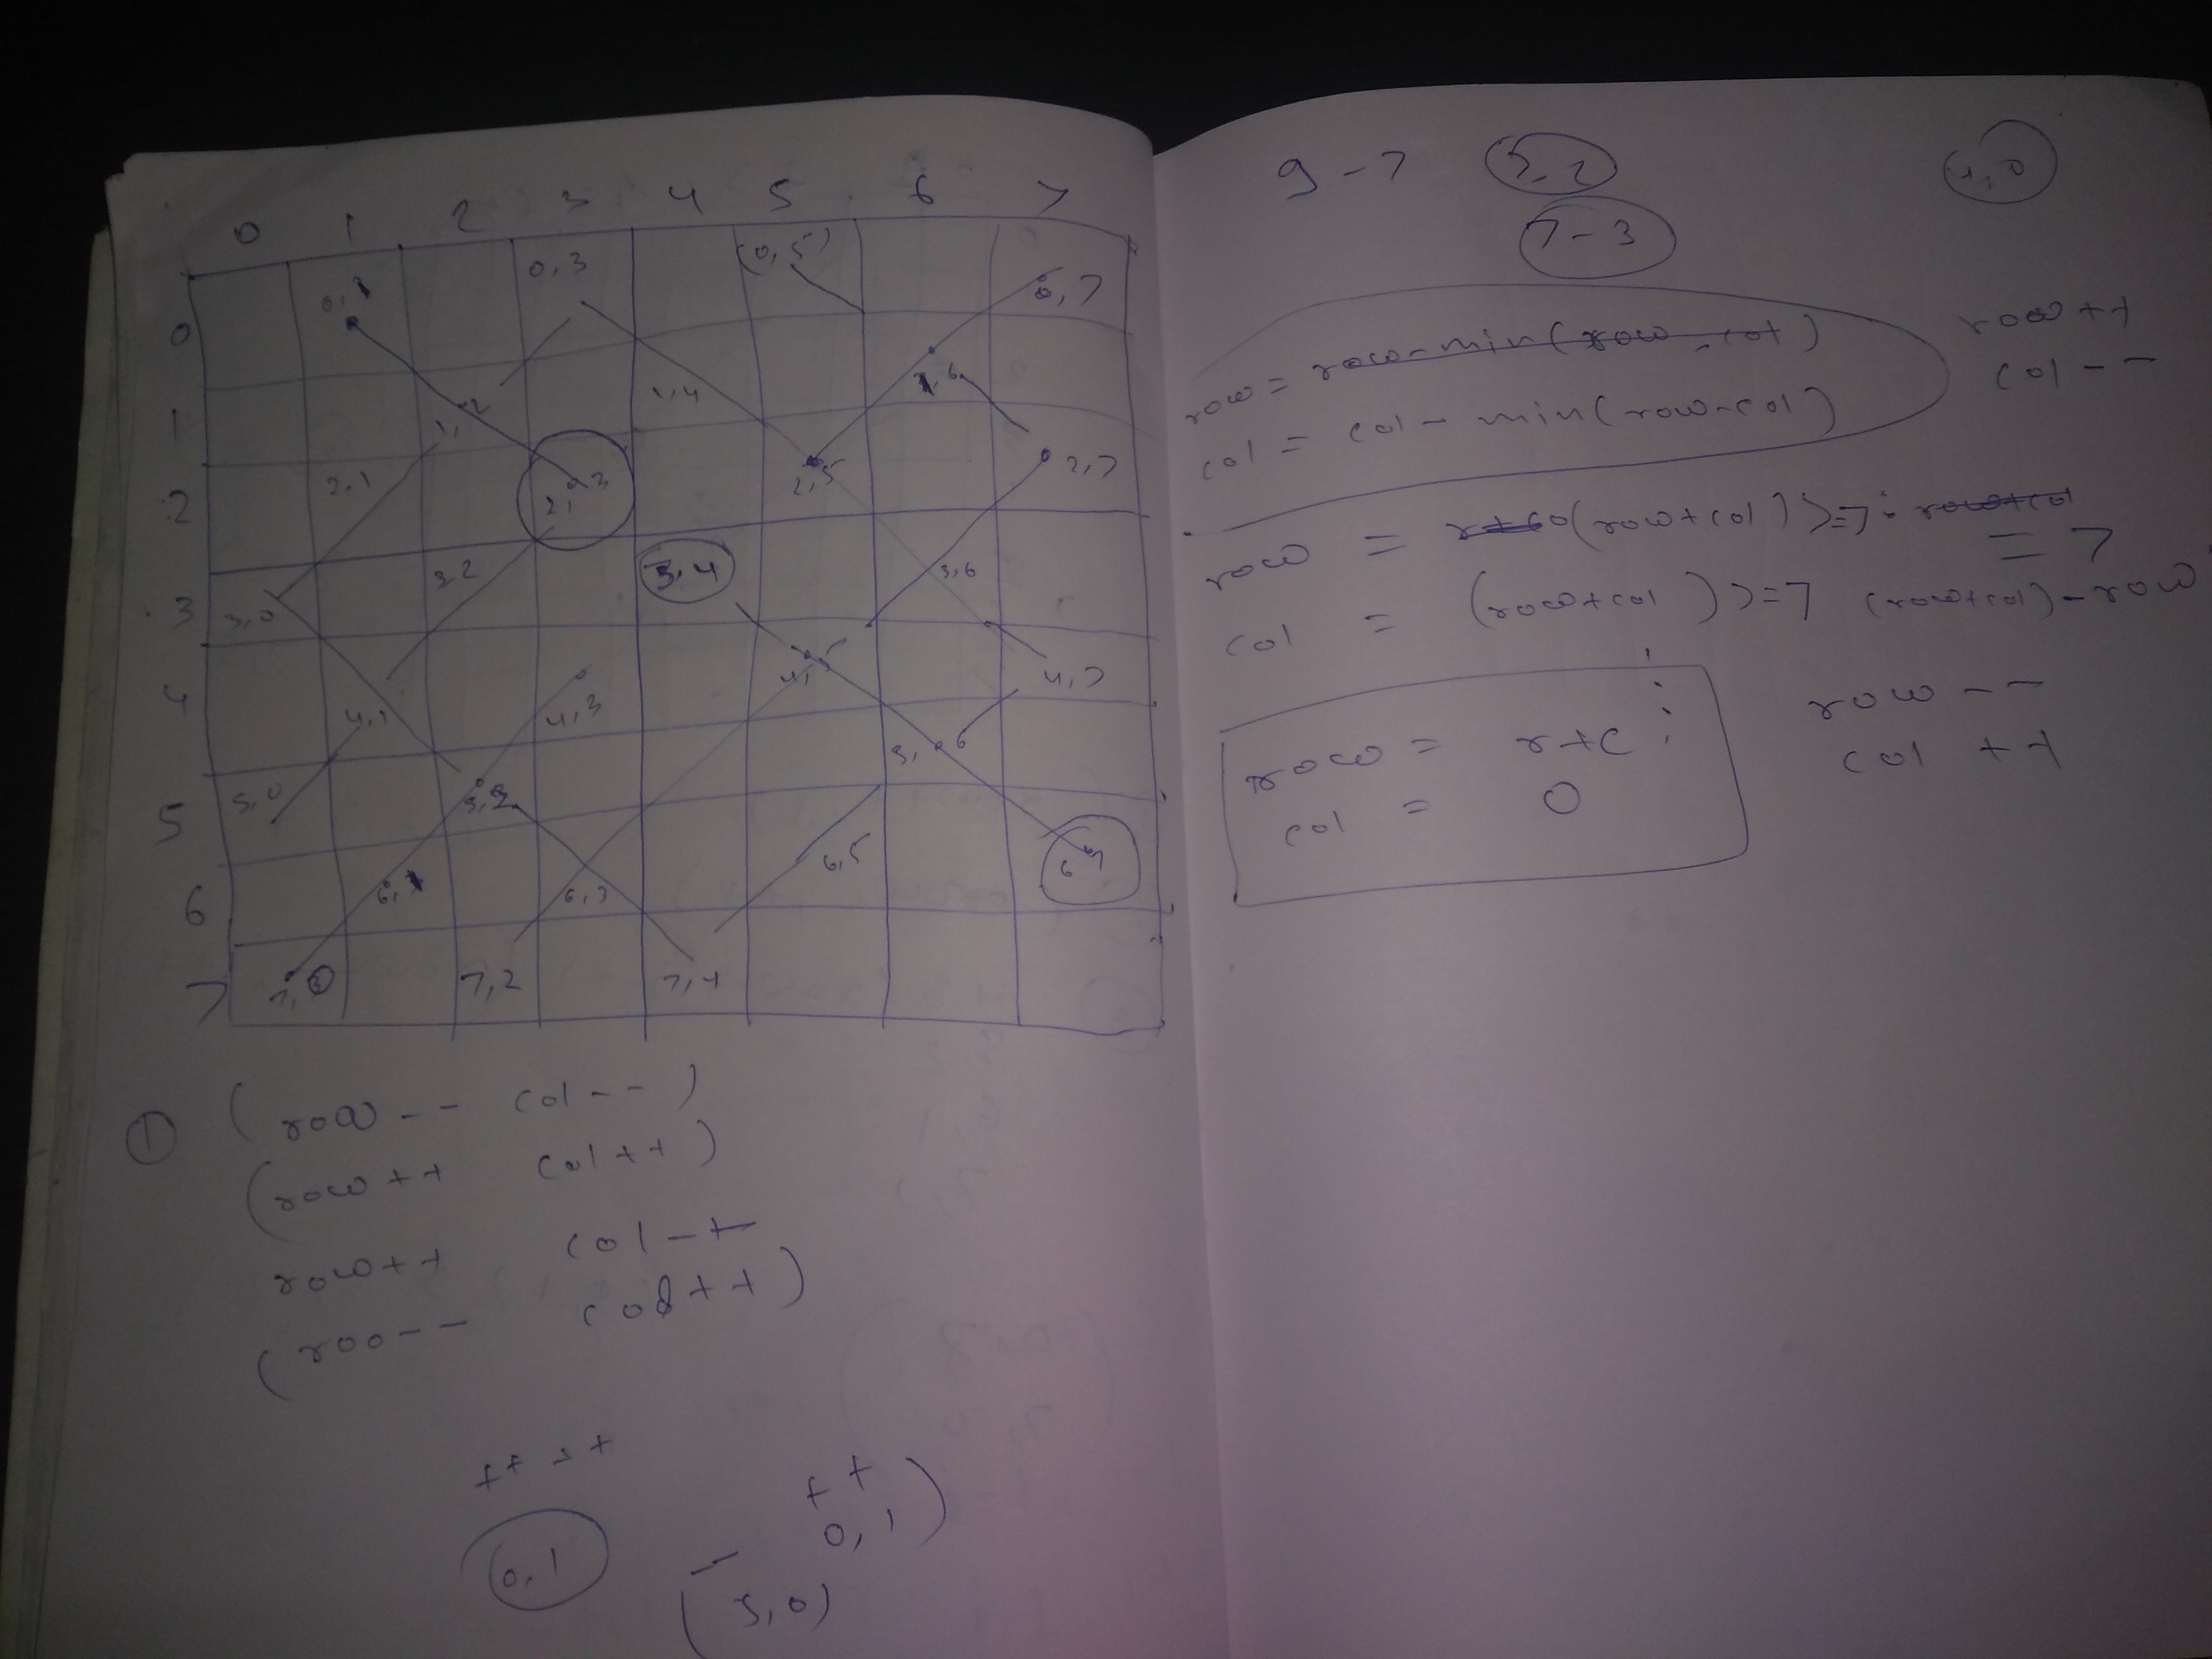 0 1 2 3 4 5 6 7
0 0,1 0,3 (0,5) 0,7
1 1,2 1,4 1,6
2 2,1 2,3 2,5 2,7
3 3,0 3,2 3,4 3,6
4 4,1 4,3 4,5 4,7
5 5,0 5,2 5,6
6 6,1 6,3 6,5 6 7
7 7,0 7,2 7,4
① (row-- col--)
(row++ col++)
row++ col-+
(roo-- col++)
0,1
++
0,1)
(5,0)
9-7 5,2
7-3
row = row-min(row-col)
col = col-min(row-col)
row++
col--
row = (row+col)>=7: row+col
= 7
col = (row+col)>=7 (row+col)-row
row = r+c ;
col = 0
row--
col++